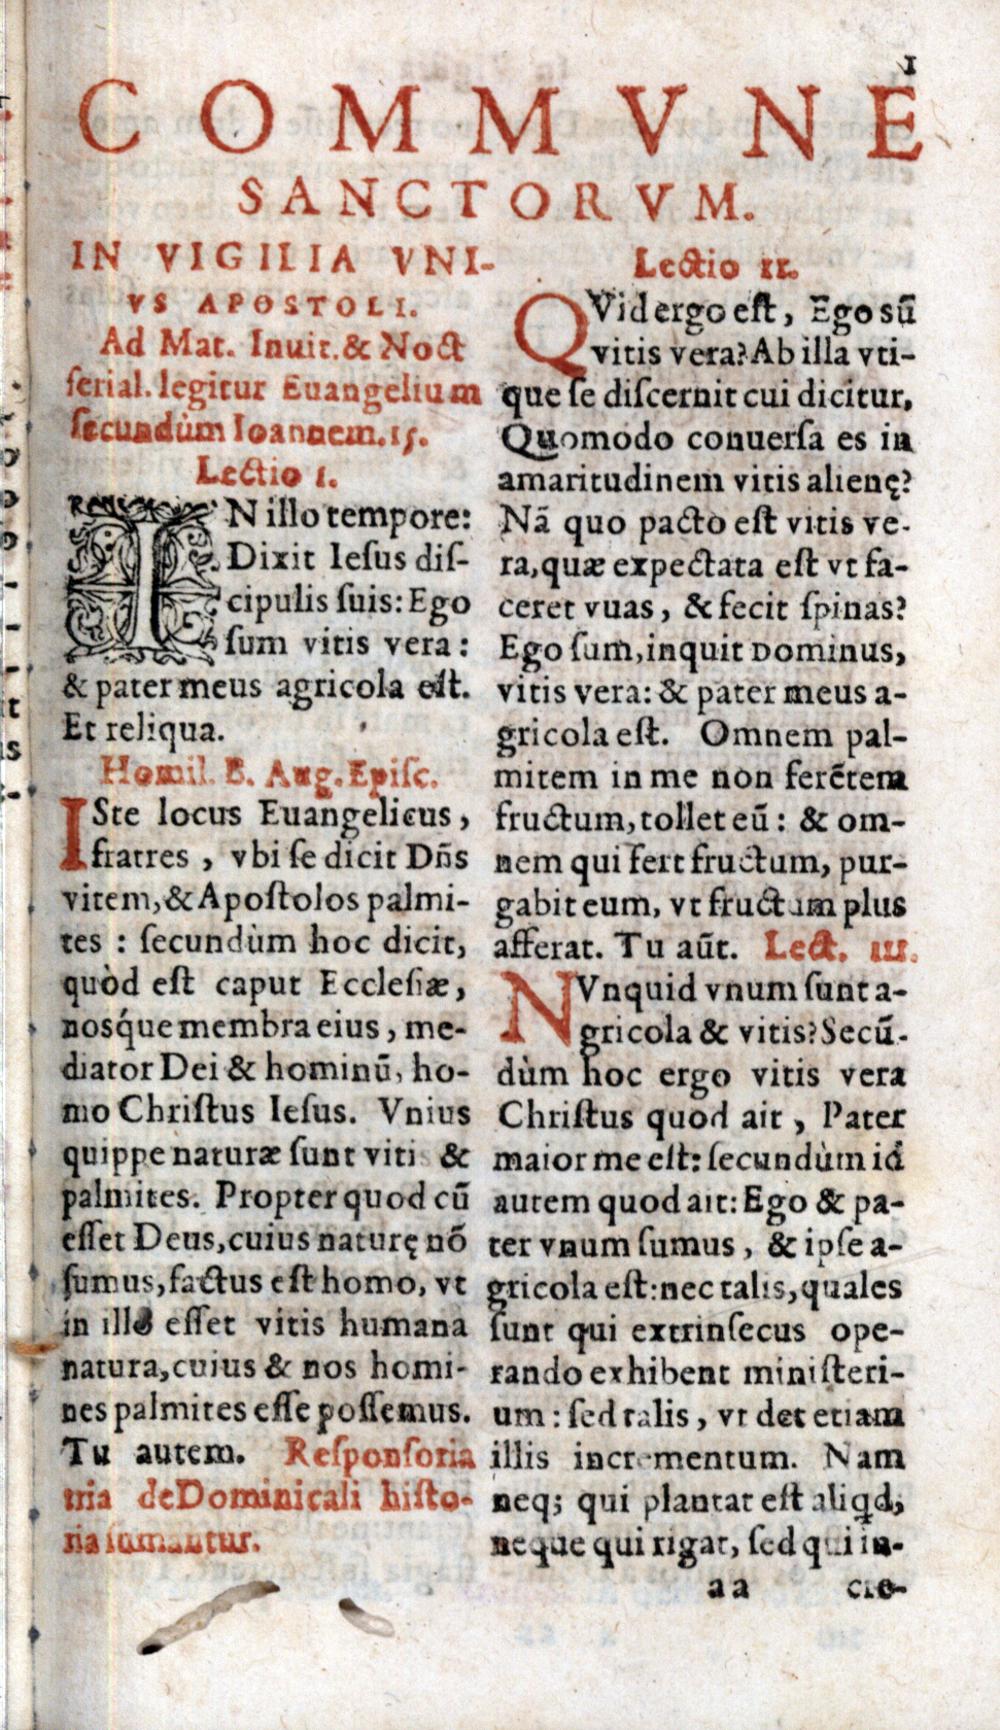 1
COMMVNE
SANCTORVM.
IN VIGILIA VNI-
VS APOSTOLI.
Ad Mat. Inuit. & Noct
ferial. legitur Euangelium
secundùm Ioannem. 15.
Lectio i.
IN illo tempore:
Dixit Iesus dis-
cipulis suis: Ego
sum vitis vera:
& pater meus agricola est.
Et reliqua.
Homil. B. Aug. Episc.
ISte locus Euangelicus,
fratres, vbi se dicit Dñs
vitem, & Apostolos palmi-
tes: secundùm hoc dicit,
quòd est caput Ecclesiæ,
nosq́ue membra eius, me-
diator Dei & hominũ, ho-
mo Christus Iesus. Vnius
quippe naturæ sunt viti &
palmites. Propter quod cũ
esset Deus, cuius naturę nõ
sumus, factus est homo, vt
in illo esset vitis humana
natura, cuius & nos homi-
nes palmites esse possemus.
Tu autem. Responsoria
tria de Dominicali histo-
ria sumantur.
Lectio ii.
QVid ergo est, Ego sũ
vitis vera? Ab illa vti-
que se discernit cui dicitur,
Quomodo conuersa es in
amaritudinem vitis alienę?
Nã quo pacto est vitis ve-
ra, quæ expectata est vt fa-
ceret vuas, & fecit spinas?
Ego sum, inquit Dominus,
vitis vera: & pater meus a-
gricola est. Omnem pal-
mitem in me non ferẽtem
fructum, tollet eũ: & om-
nem qui fert fructum, pur-
gabit eum, vt fructum plus
afferat. Tu aũt. Lect. iii.
NVnquid vnum sunt a-
gricola & vitis? Secũ-
dùm hoc ergo vitis vera
Christus quod ait, Pater
maior me est: secundùm id
autem quod ait: Ego & pa-
ter vnum sumus, & ipse a-
gricola est: nec talis, quales
sunt qui extrinsecus ope-
rando exhibent ministeri-
um: sed talis, vt det etiam
illis incrementum. Nam
neq; qui plantat est aliqd,
neque qui rigat, sed qui in-
aa cre-